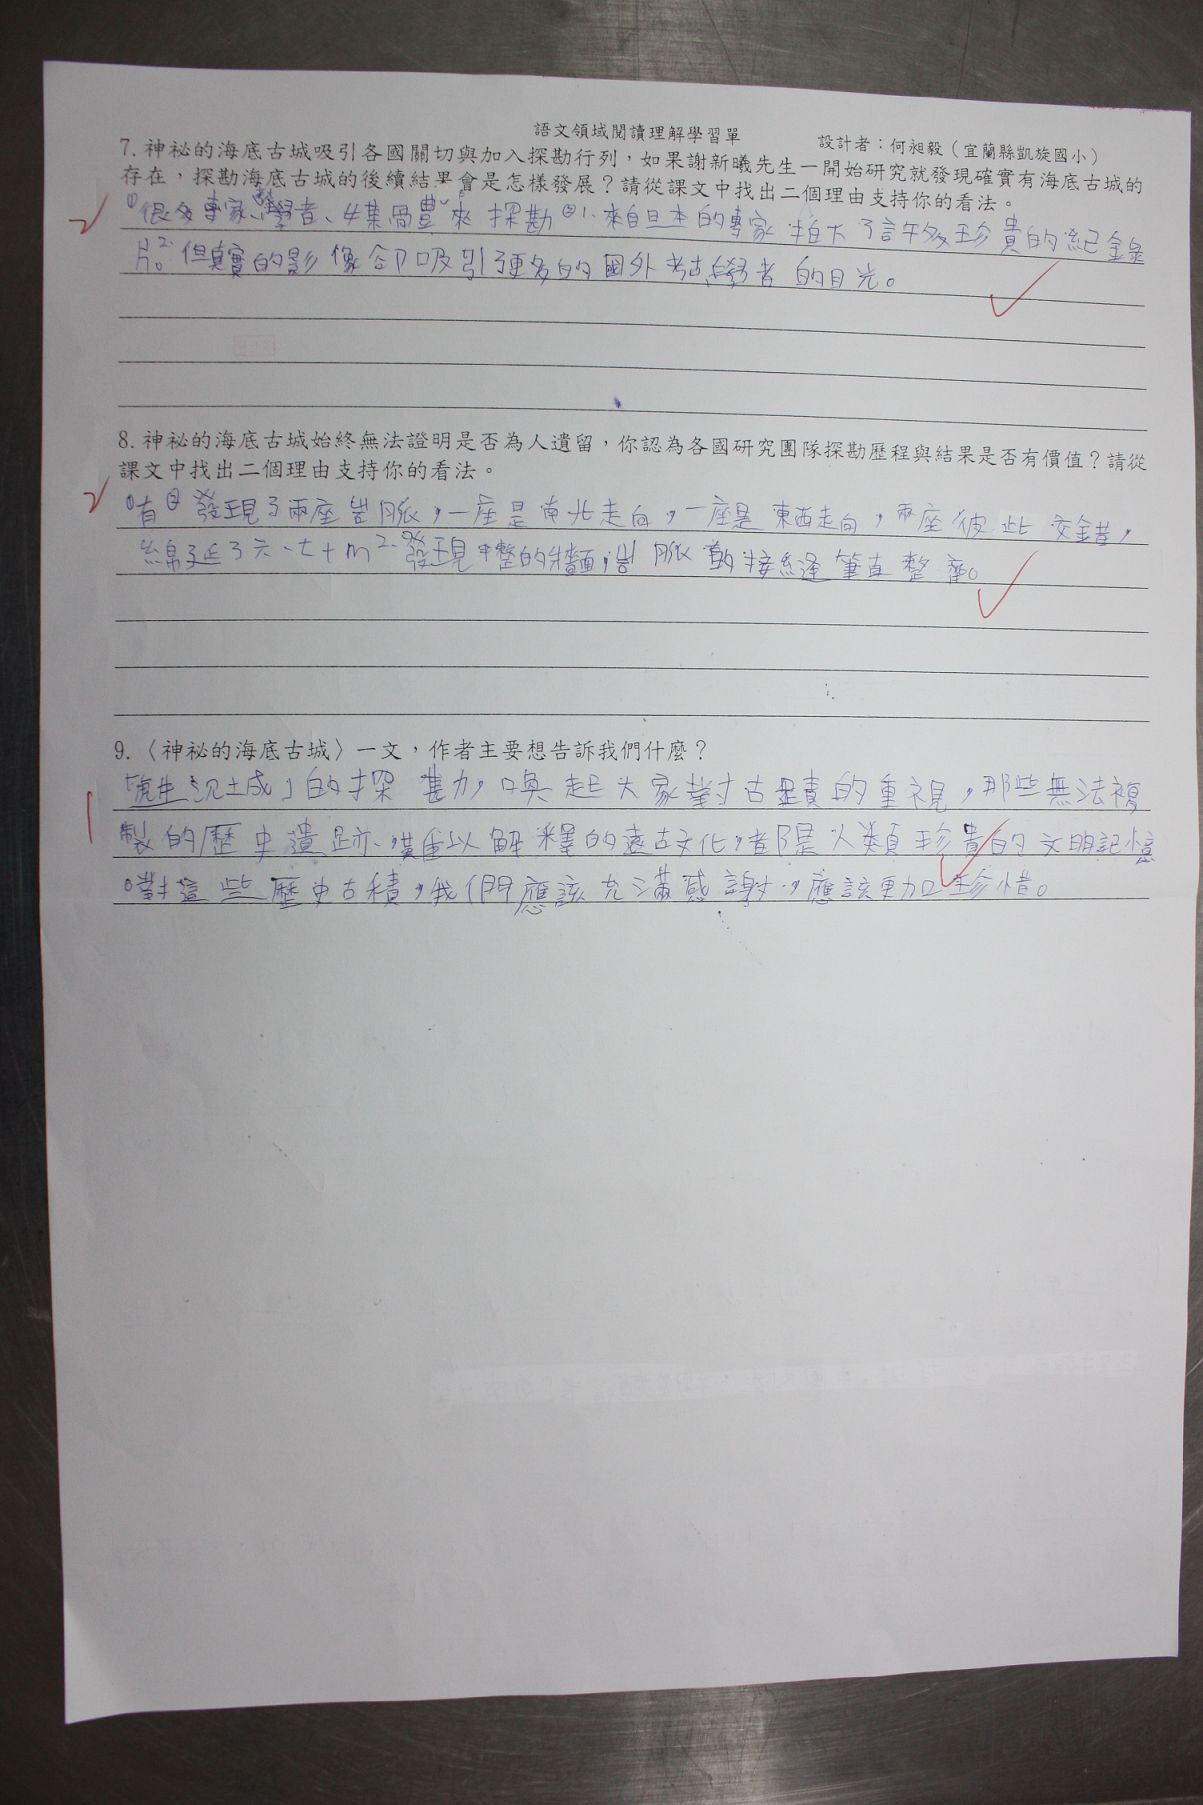 語文領域閱讀理解學習單
設計者：何昶毅（宜蘭縣凱旋國小）
7.神祕的海底古城吸引各國關切與加入探勘行列，如果謝新曦先生一開始研究就發現確實有海底古城的
存在，探勘海底古城的後續結果會是怎樣發展？請從課文中找出二個理由支持你的看法。
①很多專家、學者、 來探勘②1.來自日本的專家拍大了許多珍貴的紀錄
片。2.但真實的影像卻吸引了更多的國外考古學者的目光。
8.神祕的海底古城始終無法證明是否為人遺留，你認為各國研究團隊探勘歷程與結果是否有價值？請從
課文中找出二個理由支持你的看法。
①有②發現了兩座岩脈，一座是南北走向，一座是東西走向，兩座彼此交錯，
綿延了六、七十m 2.發現平整的牆面，岩脈的接縫筆直整齊。
9.〈神祕的海底古城〉一文，作者主要想告訴我們什麼？
「虎井沉城」的探 喚起大家對古蹟的重視，那些無法複
製的歷史遺跡，難以解釋的遠古文化，都是人類珍貴的文明記憶
。對這些歷史古積，我們應該充滿感謝，應該更加珍惜。